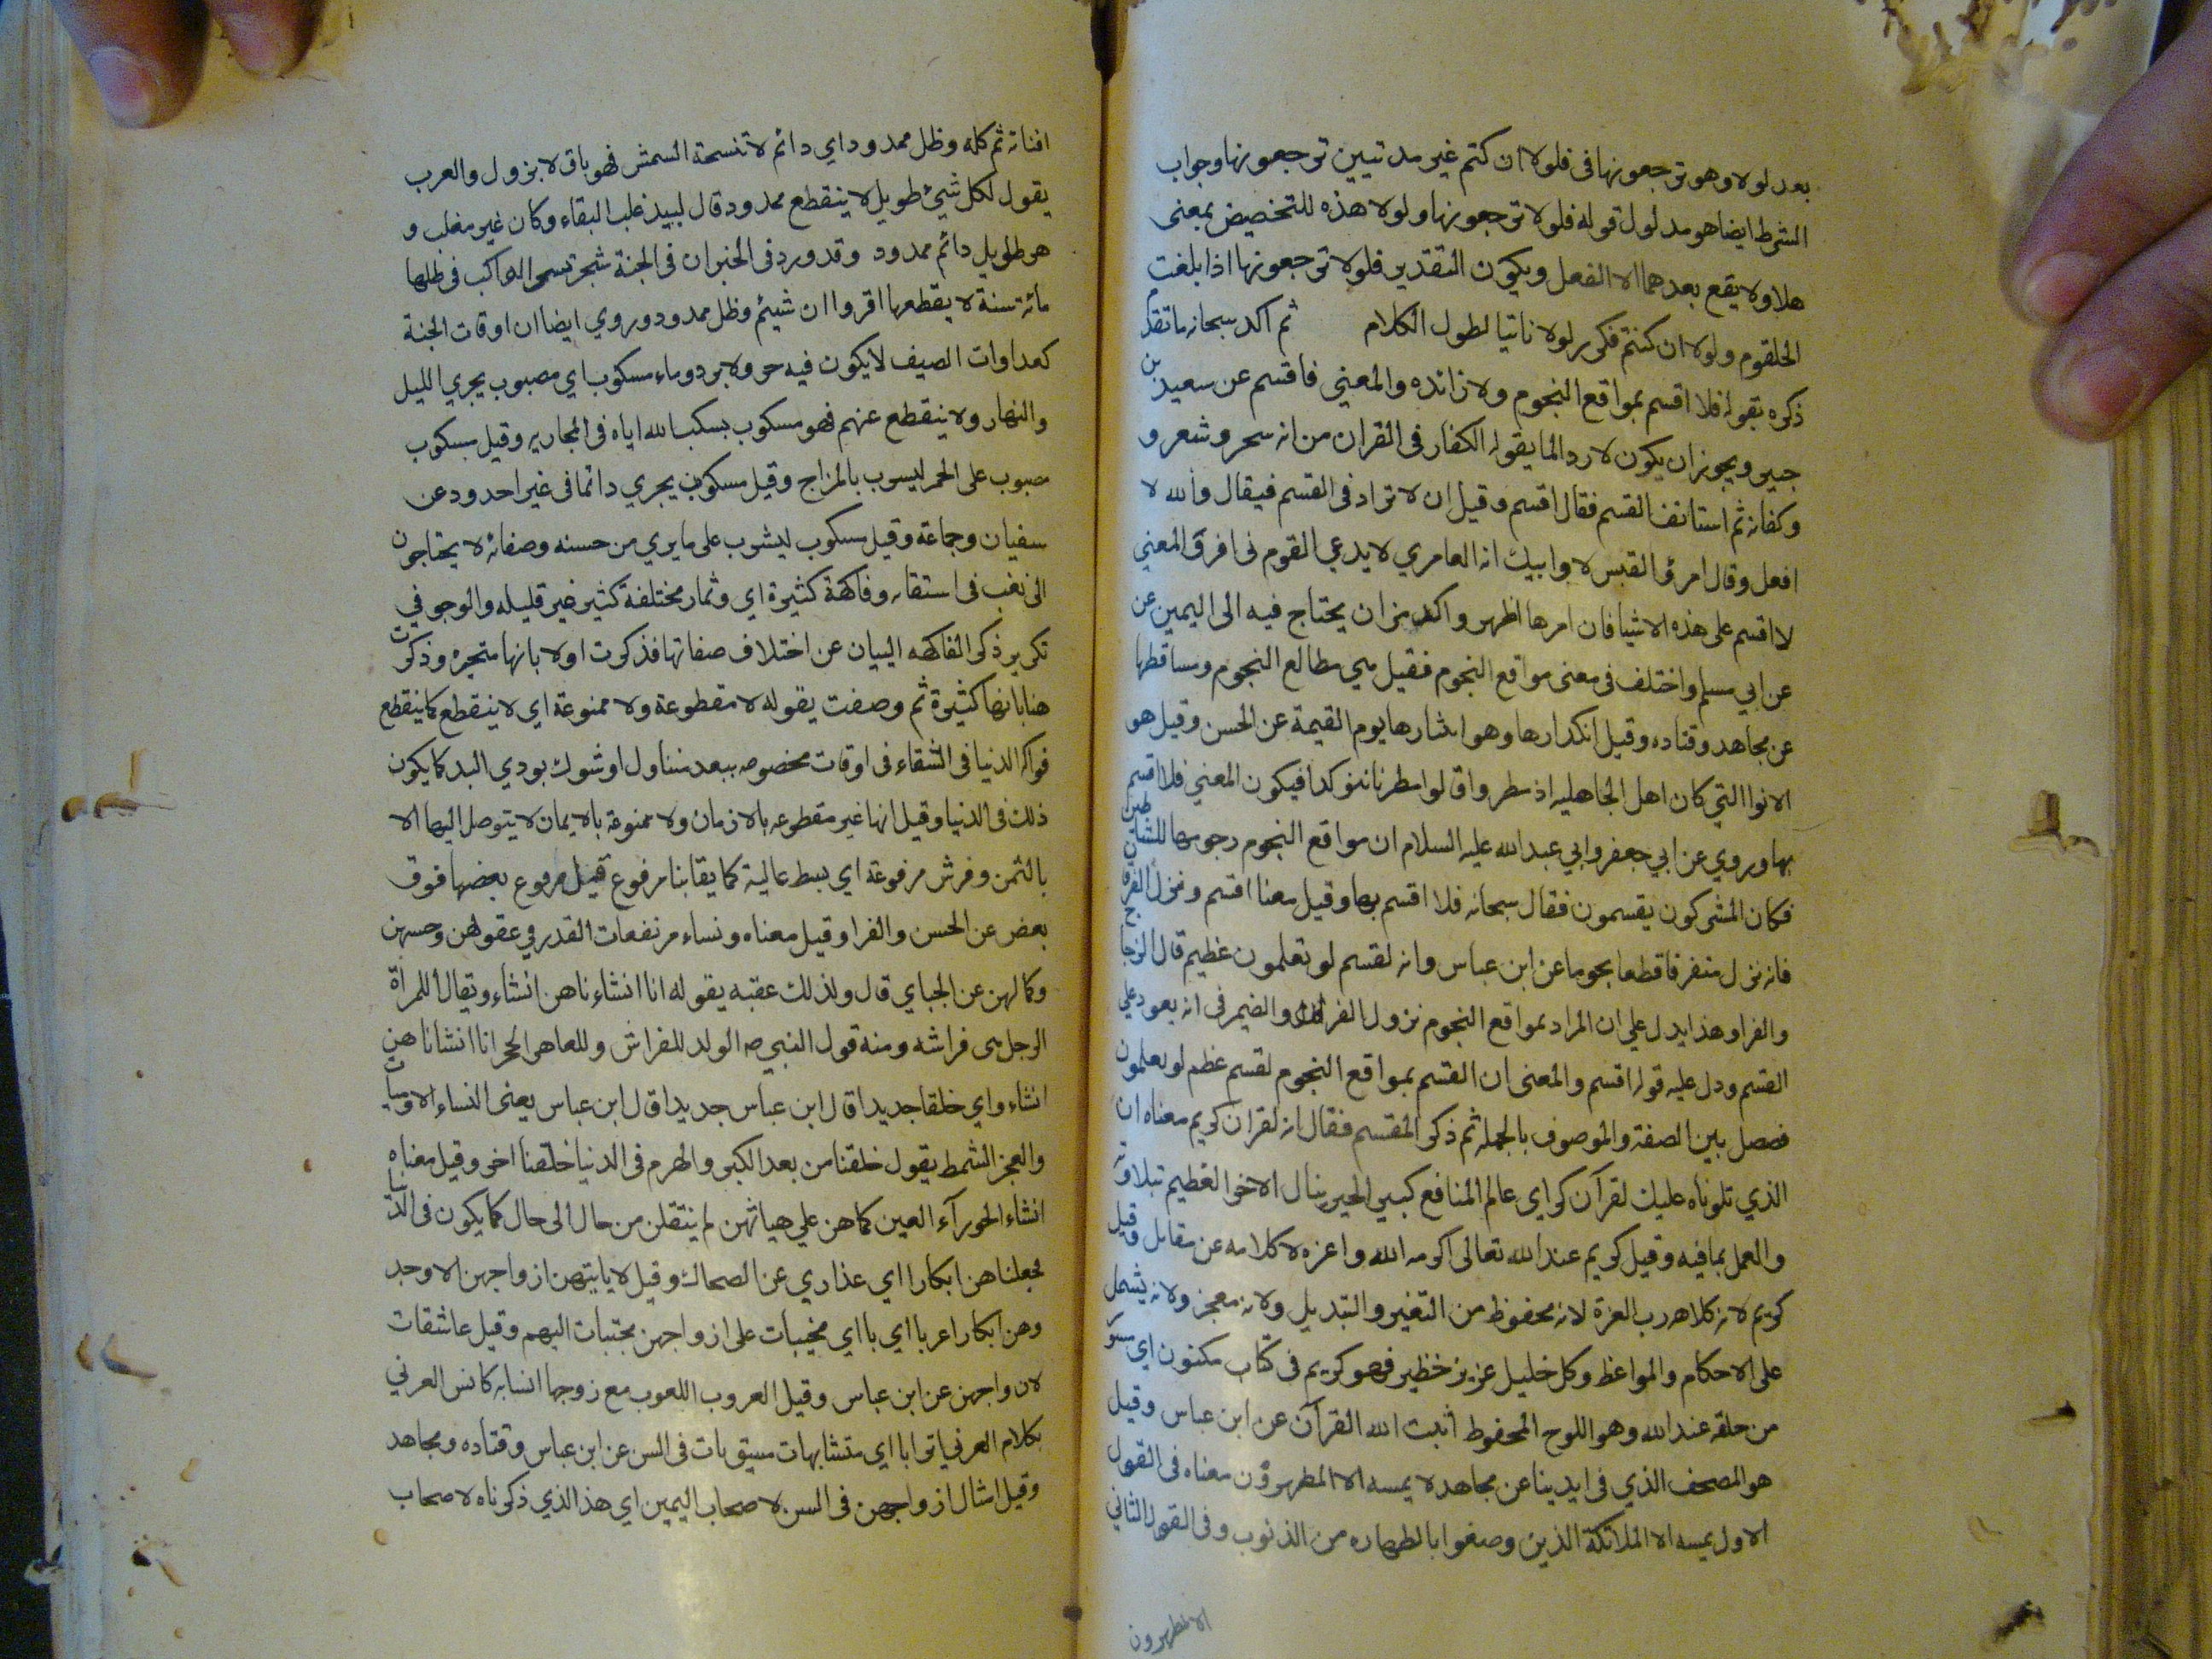 بعد لولا وهو ترجعونها في فلولا ان كنتم غير مدينين ترجعونها وجواب
الشرط ايضا هو مدلول قوله فلولا ترجعونها ولولا هذه للتخصيص بمعنى
هلا ولا يقع بعدهما الا الفعل ويكون التقدير فلولا ترجعونها اذا بلغت
الحلقوم ولولا ان كنتم فكرر لولا ثانيا لطول الكلام ثم اكد سبحانه ما تقدم
ذكره بقوله فلا اقسم بمواقع النجوم ولا زائده والمعني فاقسم عن سعيد بن
جبير ويجوز ان يكون لا ردا لما يقوله الكفار في القران من انه سحر وشعر و
وكفانه ثم استانف القسم فقال اقسم وقيل ان لا تزاد في القسم فيقال والله لا
افعل وقال امرؤ القيس لا وابيك انه العامري لا يدعي القوم اني افر والمعني
لا اقسم على هذه الاشيا فان امرها اظهر واكد من ان يحتاج فيه الى اليمين عن
عن ابي مسلم واختلف في معنى مواقع النجوم فقيل هي مطالع النجوم ومساقطها
عن مجاهد وقتاده وقيل انكدارها وهو انثارها يوم القيمة عن الحسن وقيل هو
الانوا التي كان اهل الجاهليه اذ مطروا قالوا مطرنا بنو كذا فيكون المعني فلا اقسم
بها وروي عن ابي جعفر وابي عبد الله عليه السلام ان مواقع النجوم رجومها للشياطين
فكان المشركون يقسمون فقال سبحانه فلا اقسم بها وقيل معنا اقسم ونزل القران
فانه نزل متفرقا قطعا نجوما عن ابن عباس وانه لقسم لو تعلمون عظيم قال الزجاج
والفرا وهذا يدل علي ان المراد بمواقع النجوم نزول القران والضمير في انه يعود علي
القسم ودل عليه قوله اقسم والمعنى ان القسم بمواقع النجوم لقسم عظم لو يعلمون
فصل بين الصفة والموصوف بالجمله ثم ذكر المقسم فقال انه لقران كريم معناه ان
الذي تلوناه عليك لقرآن كر اي عالم المنافع كبير الخير ينال الاخر العظيم بتلاوته
والعمل بما فيه وقيل كريم عند الله تعالى اكرمه الله واعزه لا كلامه عن مقاتل وقيل
كريم لانه كلام رب العزة لانه محفوظ من التغير والتبديل ولانه معجز ولانه يشمل
على الاحكام والمواعظ وكل خليل عزيز خظير فهو كريم في كتاب مكنون اي مستور
من خلقه عند الله وهو اللوح المحفوظ اثبت الله القرآن عن ابن عباس وقيل
هو المصحف الذي في ايدينا عن مجاهد لا يمسه الا المطهرون معناه في القول
الاول يمسه الا الملائكة الذين وصفوا بالطهاره من الذنوب وفي القول الثاني
الا المطهرون
افنانه ثم كله وظل ممدود اي دائم لا تنسحه السمش فهو باق لا يزول والعرب
يقول لكل شيئ طويل لا ينقطع ممدود قال لبيد غلب البقاء وكان غير مغلب و
هر طويل دائم ممدود وقد ورد في الخبر ان في الجنة شجرة يسير الراكب في ظلها
مائة سنة لا يقطعها اقروا ان شيئم وظل ممدود وروي ايضا ان اوقات الجنة
كغداوات الصيف لا يكون فيه حر ولا برد وماء مسكوب اي مصبوب يجري الليل
والنهار ولا ينقطع عنهم فهو مسكوب بسكب الله اياه في المجاريه وقيل مسكوب
مصبوب على الخمر ليسوب بالمزاج وقيل مسكوب يجري دائما في غير احدود عن
سفيان وجماعة وقيل مسكوب ليشوب على ما يري من حسنه وصفائه لا يحتاجون
الى نغب في استقائه وفاكهة كثيرة اي وثمار مختلفة كثير غير قليله والوجه في
تكرير ذكر الفاكهه البيان عن اختلاف صفاتها فذكرت اولا بانها متجره وذكرت
هنا بانها كثيرة ثم وصفت يقوله لا مقطوعة ولا ممنوعة اي لا ينقطع كما ينقطع
فواكه الدنيا في الشتاء في اوقات مخصوصه ببعد متناول او شوك يودي اليد كما يكون
ذلك في الدنيا وقيل انها غير مقطوعه بالازمان ولا ممنوعه بالايمان لا يتوصل اليها الا
بالثمن وفرش مرفوعة اي بسط عالية كما يقا بنا مرفوع قيل مرفوع بعضها فوق
بعض عن الحسن والفرا وقيل معناه ونساء مرتفعات القدر في عقولهن وحسنهن
وكمالهن عن الجباي قال ولذلك عقبه يقوله انا انشاء ناهن انشاء ويقال للمراة
الرجل هي فراشه ومنه قول النبي ص الولد للفراش وللعاهر الحجر انا انشاناهن
انشاء واي خلقا جديدا قال ابن عباس جديدا قال ابن عباس يعني النساء الادميات
والعجز الشمط يقول خلقنا من بعد الكبر والهرم في الدنيا خلقنا اخر وقيل معناه
انشاء الحور آء العين كما هن علي هياتهن لم ينتقلن من حال الى حال كما يكون في الدنيا
فجعلناهن ابكارا اي عذاري عن الضحاك وقيل لا ياتيهن ازواجهن الا وجد
وهن ابكارا عربا اي با اي مخببات على ازواجهن مجتببات اليهم وقيل عاشقات
لان واجهن عن ابن عباس وقيل العروب اللعوب مع زوجها انسا به كانس العربي
بكلام العربي اترابا اي متشابهات مستويات في السن عن ابن عباس وقتاده ومجاهد
وقيل امثال ازواجهن في السن لا صحاب اليمين اي هذا الذي ذكرناه لا صحاب